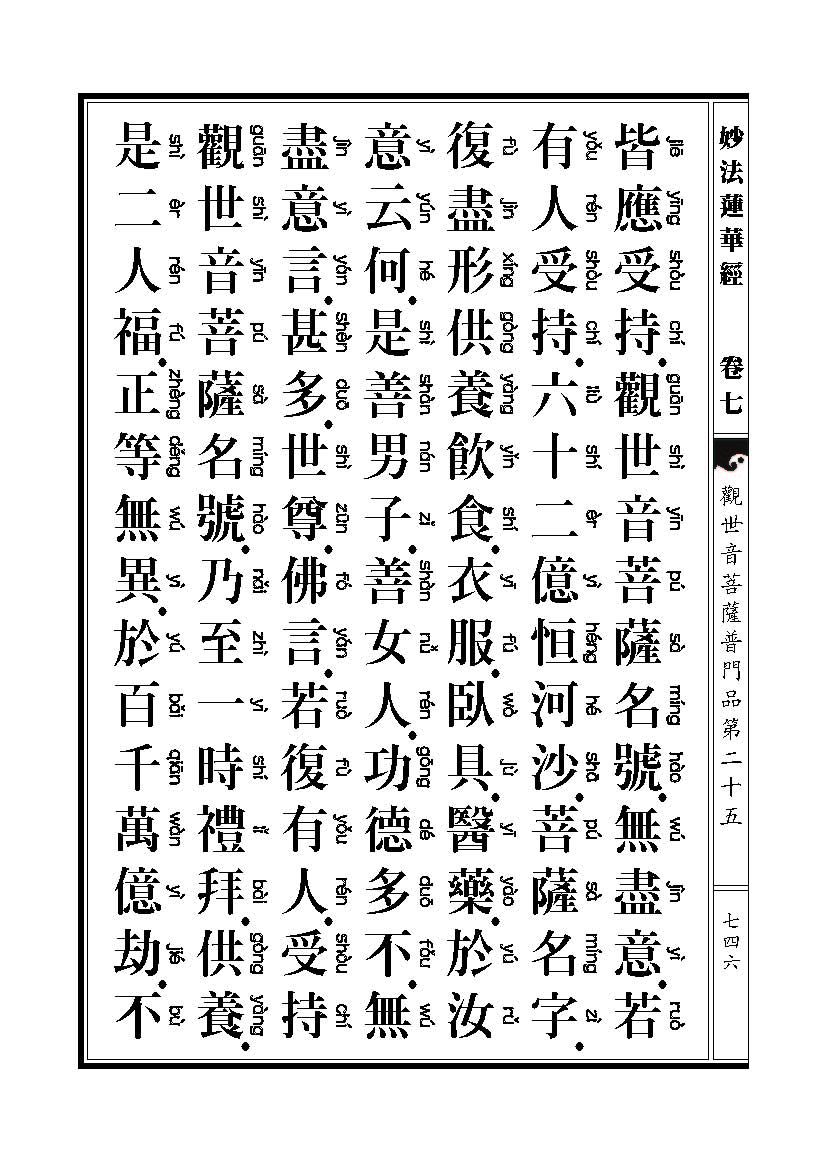 妙法蓮華經　卷七
觀世音菩薩普門品第二十五
七四六
jiē yīng shòu chí guān shì yīn pú sà míng hào wú jìn yì ruò
皆應受持。觀世音菩薩名號無盡意。若
yǒu rén shòu chí liù shí èr yì héng hé shā pú sà míng zì
有人受持。六十二億恒河沙。菩薩名字。
fù jìn xíng gòng yàng yǐn shí yī fú wò jù yī yào yú rǔ
復盡形供養飲食。衣服。臥具。醫藥。於汝
yì yún hé shì shàn nán zǐ shàn nǚ rén gōng dé duō fǒu wú
意云何。是善男子。善女人。功德多不。無
jìn yì yán shèn duō shì zūn fó yán ruò fù yǒu rén shòu chí
盡意言。甚多。世尊。佛言。若復有人。受持
guān shì yīn pú sà míng hào nǎi zhì yì shí lǐ bài gòng yàng
觀世音菩薩名號。乃至一時禮拜。供養。
shì èr rén fú zhèng děng wú yì yú bǎi qiān wàn yì jié bù
是二人福。正等無異。於百千萬億劫。不